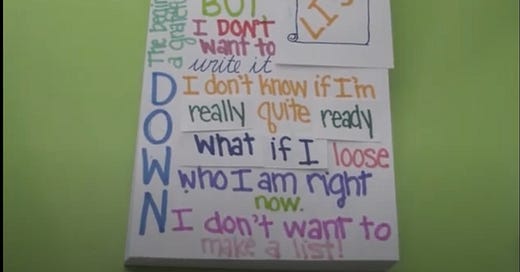 The begin
a gratef
BUT
I DON'T
want to
write it
LIST
DOWN
I don't know if I'm
really quite ready
what if I loose
who I am right
now.
I don't want to
make a list!